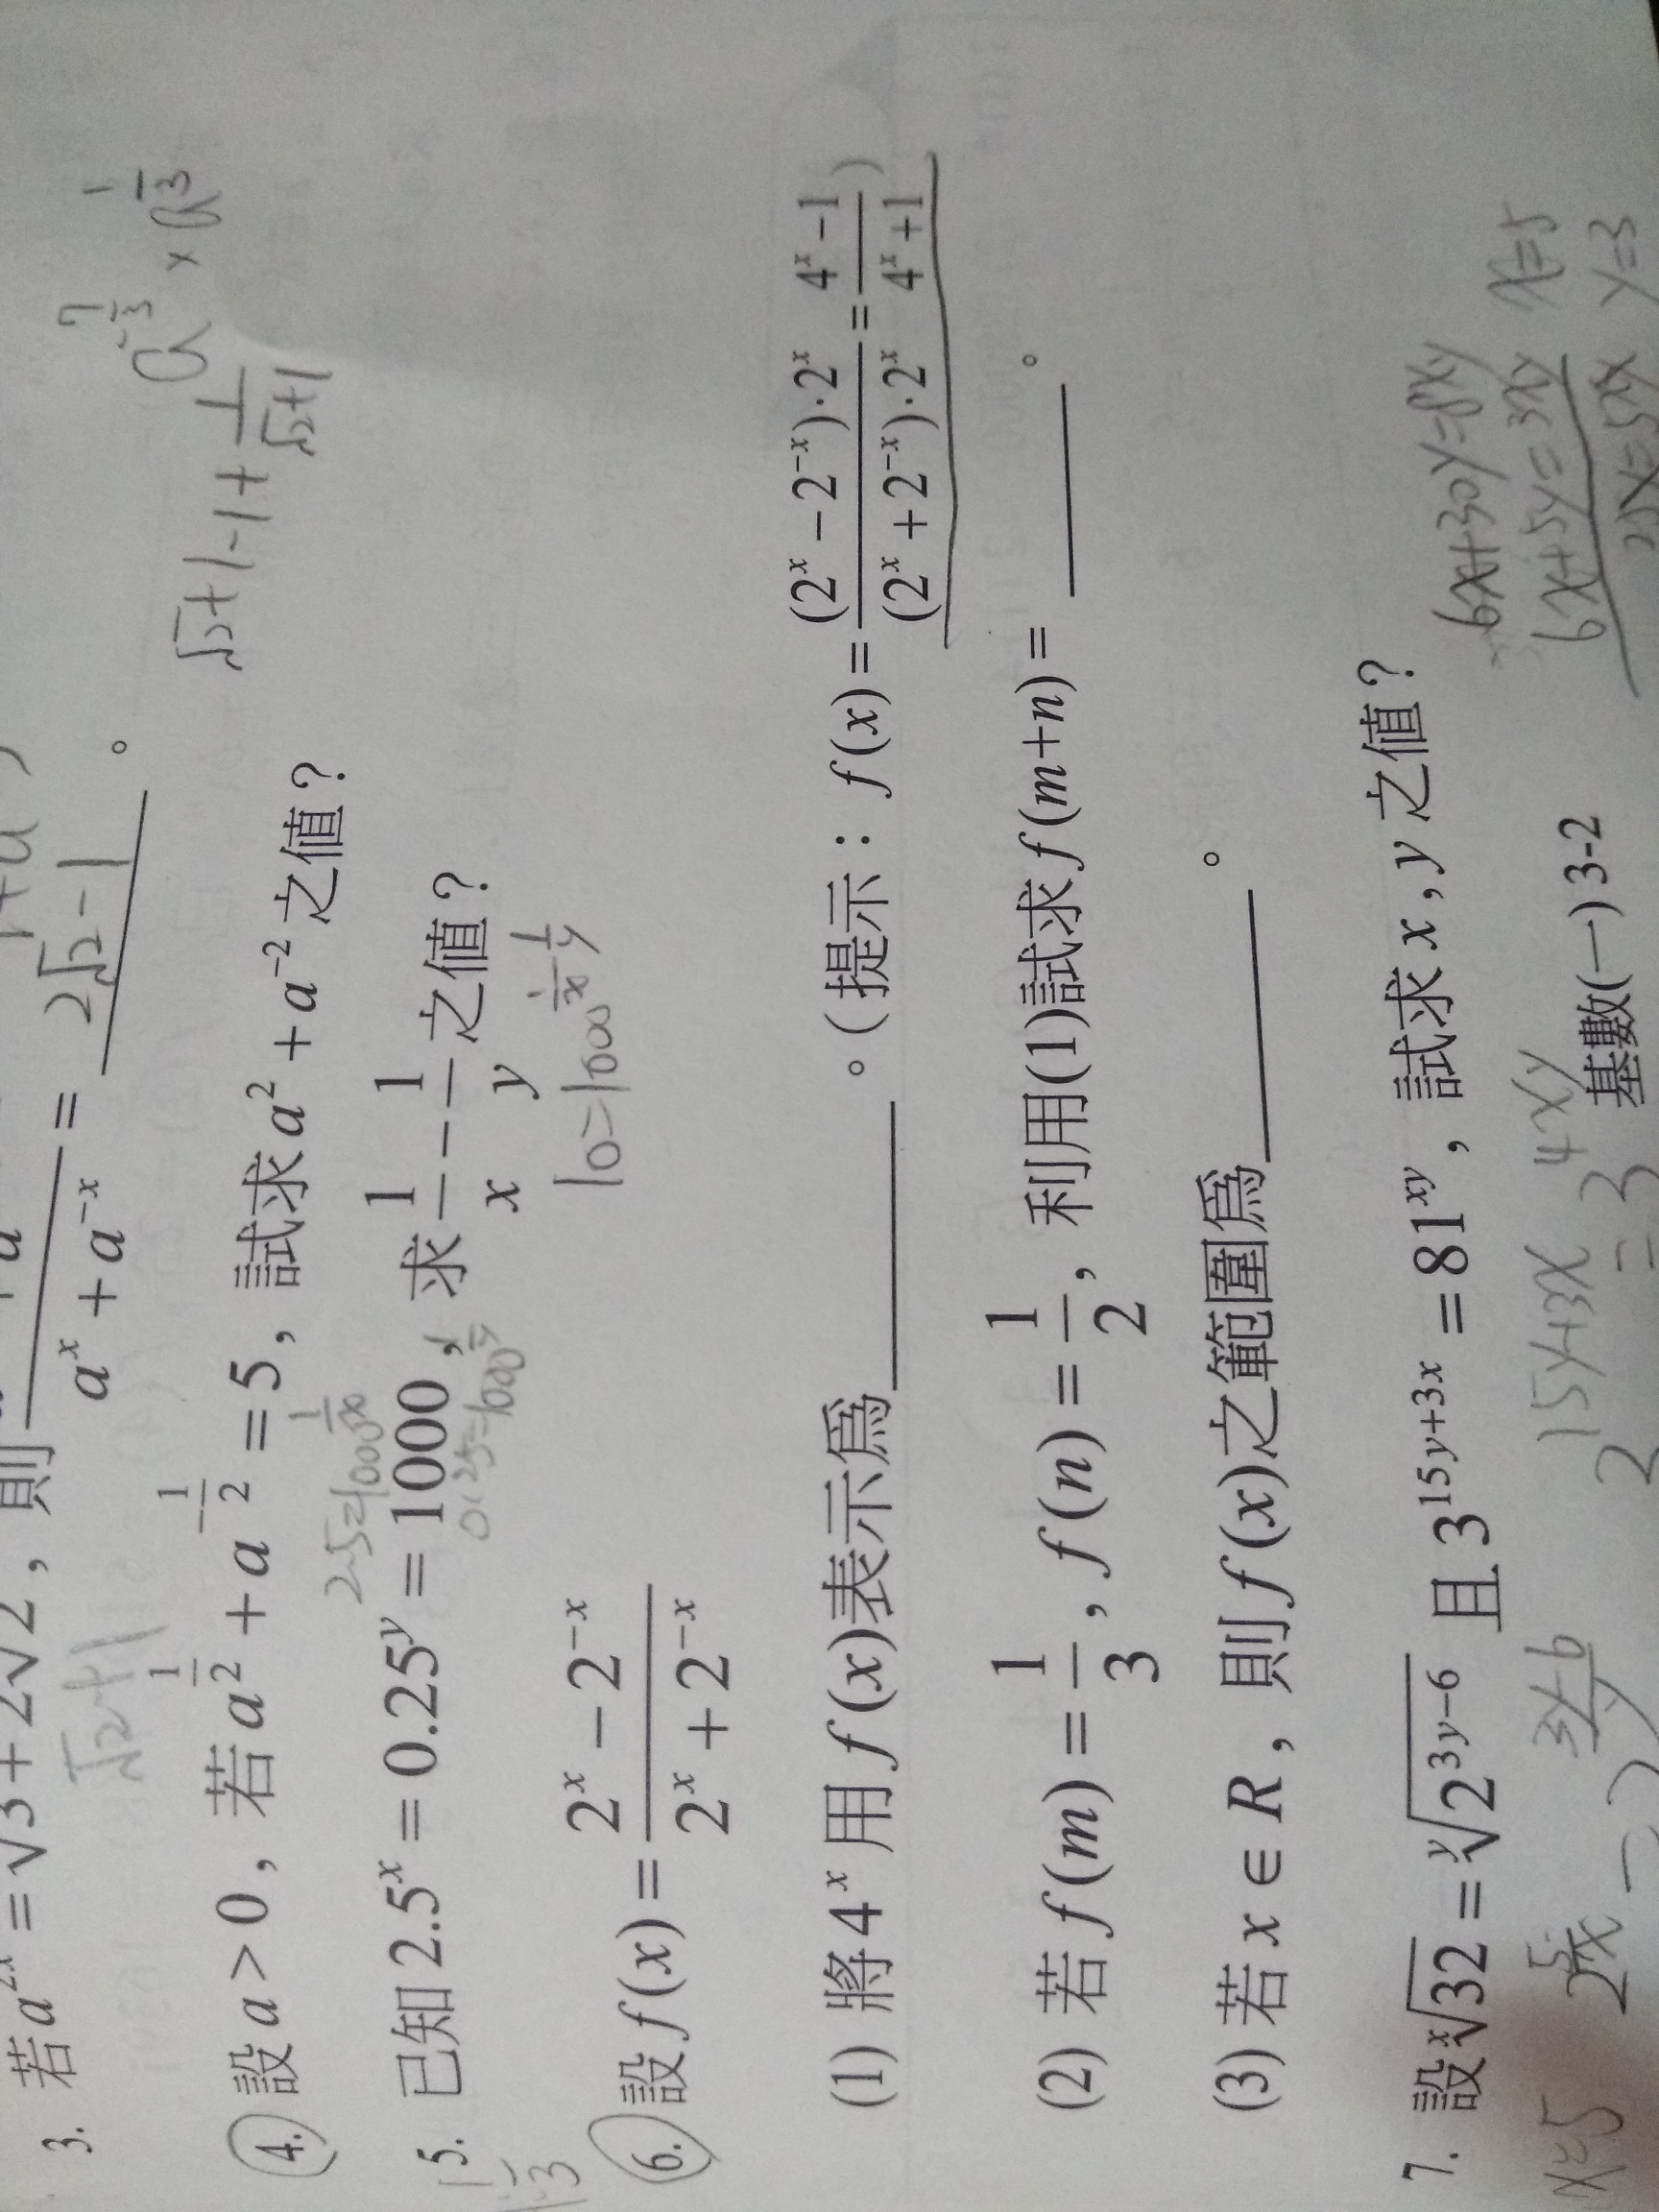 3. 若a^{2x} = √3+2√2, 則 a^x + a^{-x} = 2√2-1 。
√2+1
√2+1-1+1/(√2+1)
4. 設a>0, 若a^{1/2}+a^{-1/2}=5, 試求a^2+a^{-2}之值?
5. 已知2.5^x=0.25^y=1000, 求1/x-1/y之值?
2.5=1000^{1/x}
0.25=1000^{1/y}
10=1000^{1/x-1/y}
6. 設f(x)=(2^x-2^{-x})/(2^x+2^{-x})
(1) 將4^x用f(x)表示爲______。(提示：f(x)=((2^x-2^{-x})·2^x)/((2^x+2^{-x})·2^x)=(4^x-1)/(4^x+1))
(2) 若f(m)=1/3, f(n)=1/2, 利用(1)試求f(m+n)=______。
(3) 若x∈R, 則f(x)之範圍爲______。
7. 設\sqrt[x]{32}=\sqrt[y]{2^{3y-6}}且3^{15y+3x}=81^{xy}, 試求x,y之值?
6x+5y=3xy
x=5
y=3
基數(一)3-2